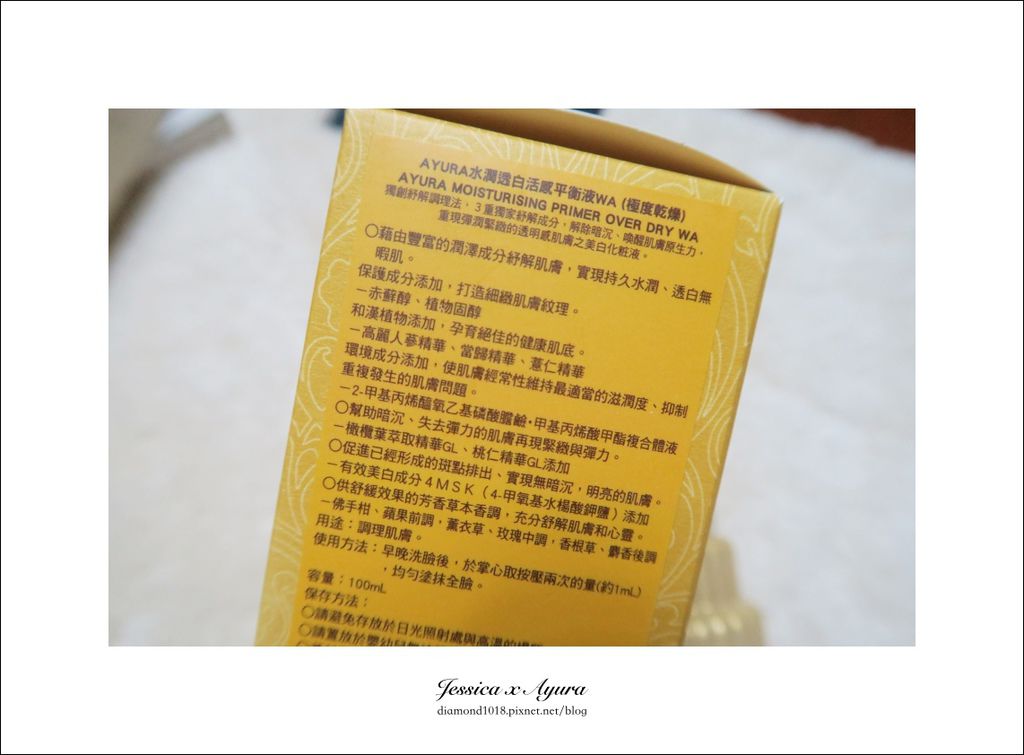 AYURA水潤透白活感平衡液WA (極度乾燥)
AYURA MOISTURISING PRIMER OVER DRY WA
獨創紓解調理法，３重獨家紓解成分，解除暗沉、喚醒肌膚原生力，
重現彈潤緊緻的透明感肌膚之美白化粧液。
○藉由豐富的潤澤成分紓解肌膚，實現持久水潤、透白無
暇肌。
保護成分添加，打造細緻肌膚紋理。
－赤蘚醇、植物固醇
和漢植物添加，孕育絕佳的健康肌底。
－高麗人蔘精華、當歸精華、薏仁精華
環境成分添加，使肌膚經常性維持最適當的滋潤度、抑制
重複發生的肌膚問題。
－2-甲基丙烯醯氧乙基磷酸膽鹼•甲基丙烯酸甲酯複合體液
○幫助暗沉、失去彈力的肌膚再現緊緻與彈力。
－橄欖葉萃取精華GL、桃仁精華GL添加
○促進已經形成的斑點排出、實現無暗沉，明亮的肌膚。
－有效美白成分４ＭＳＫ（4-甲氧基水楊酸鉀鹽）添加
○供舒緩效果的芳香草本香調，充分舒解肌膚和心靈。
－佛手柑、蘋果前調，薰衣草、玫瑰中調，香根草、麝香後調
用途：調理肌膚。
使用方法：早晚洗臉後，於掌心取按壓兩次的量(約1mL)
，均勻塗抹全臉。
容量：100mL
保存方法：
○請避免存放於日光照射處與高溫的
○請置放於嬰幼兒
Jessica x Ayura
diamond1018.pixnet.net/blog